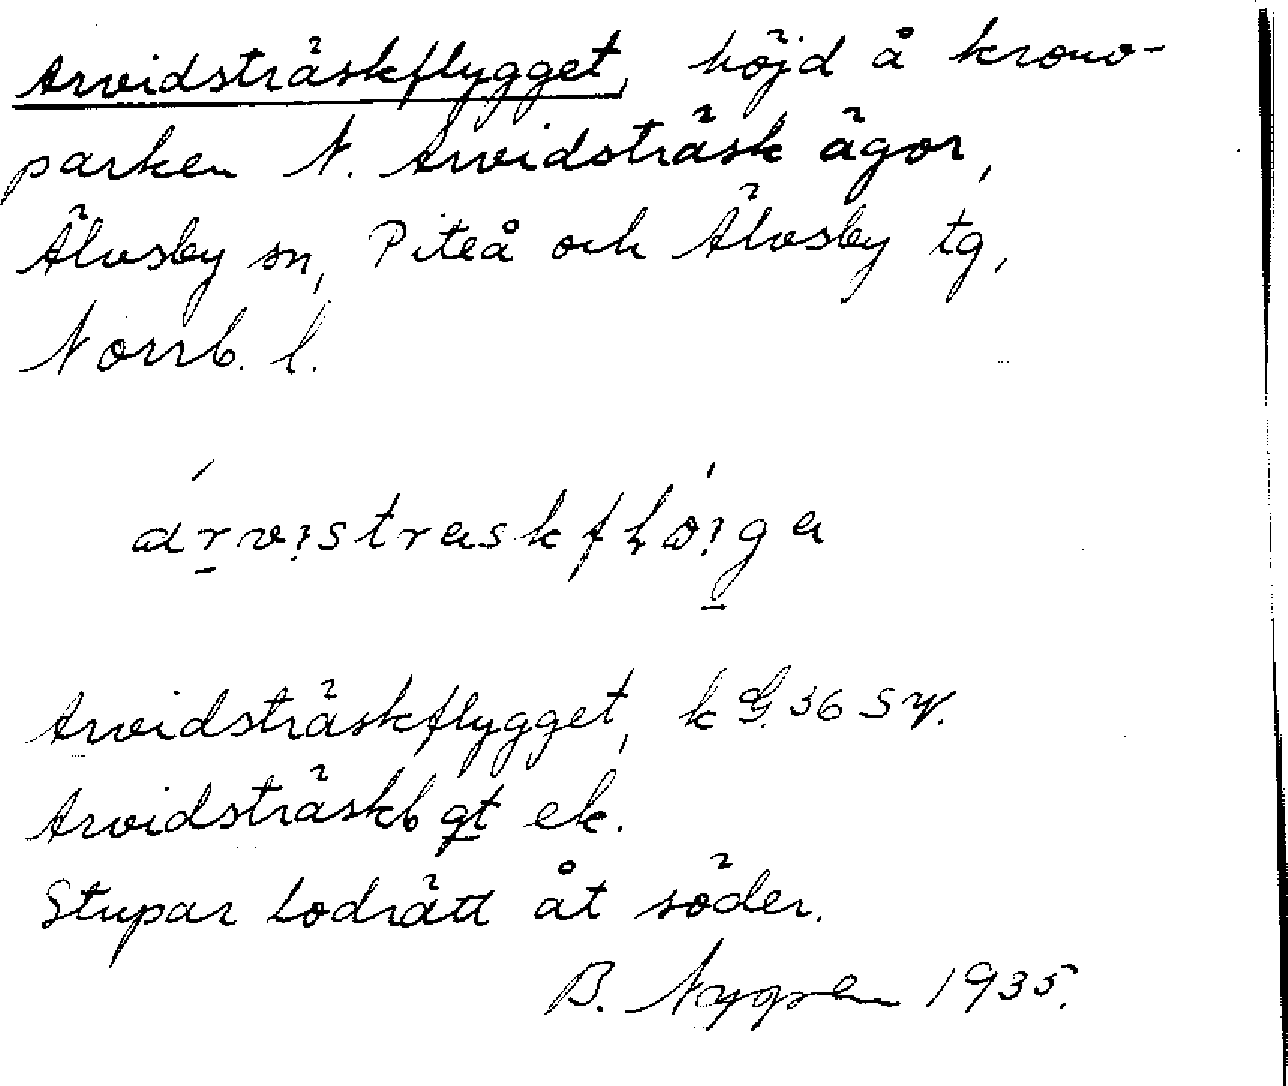 Arvidsträskflygget, höjd å krono-
parken N. Arvidsträsk ägor,
Älvsby sn, Piteå och Älvsby tg,
Norrb. l.
Arvidsträskflygget, k G. 36 SV.
Arvidsträskb gt ek.
Stupar lodrätt åt söder.
B. Nygren 1935.